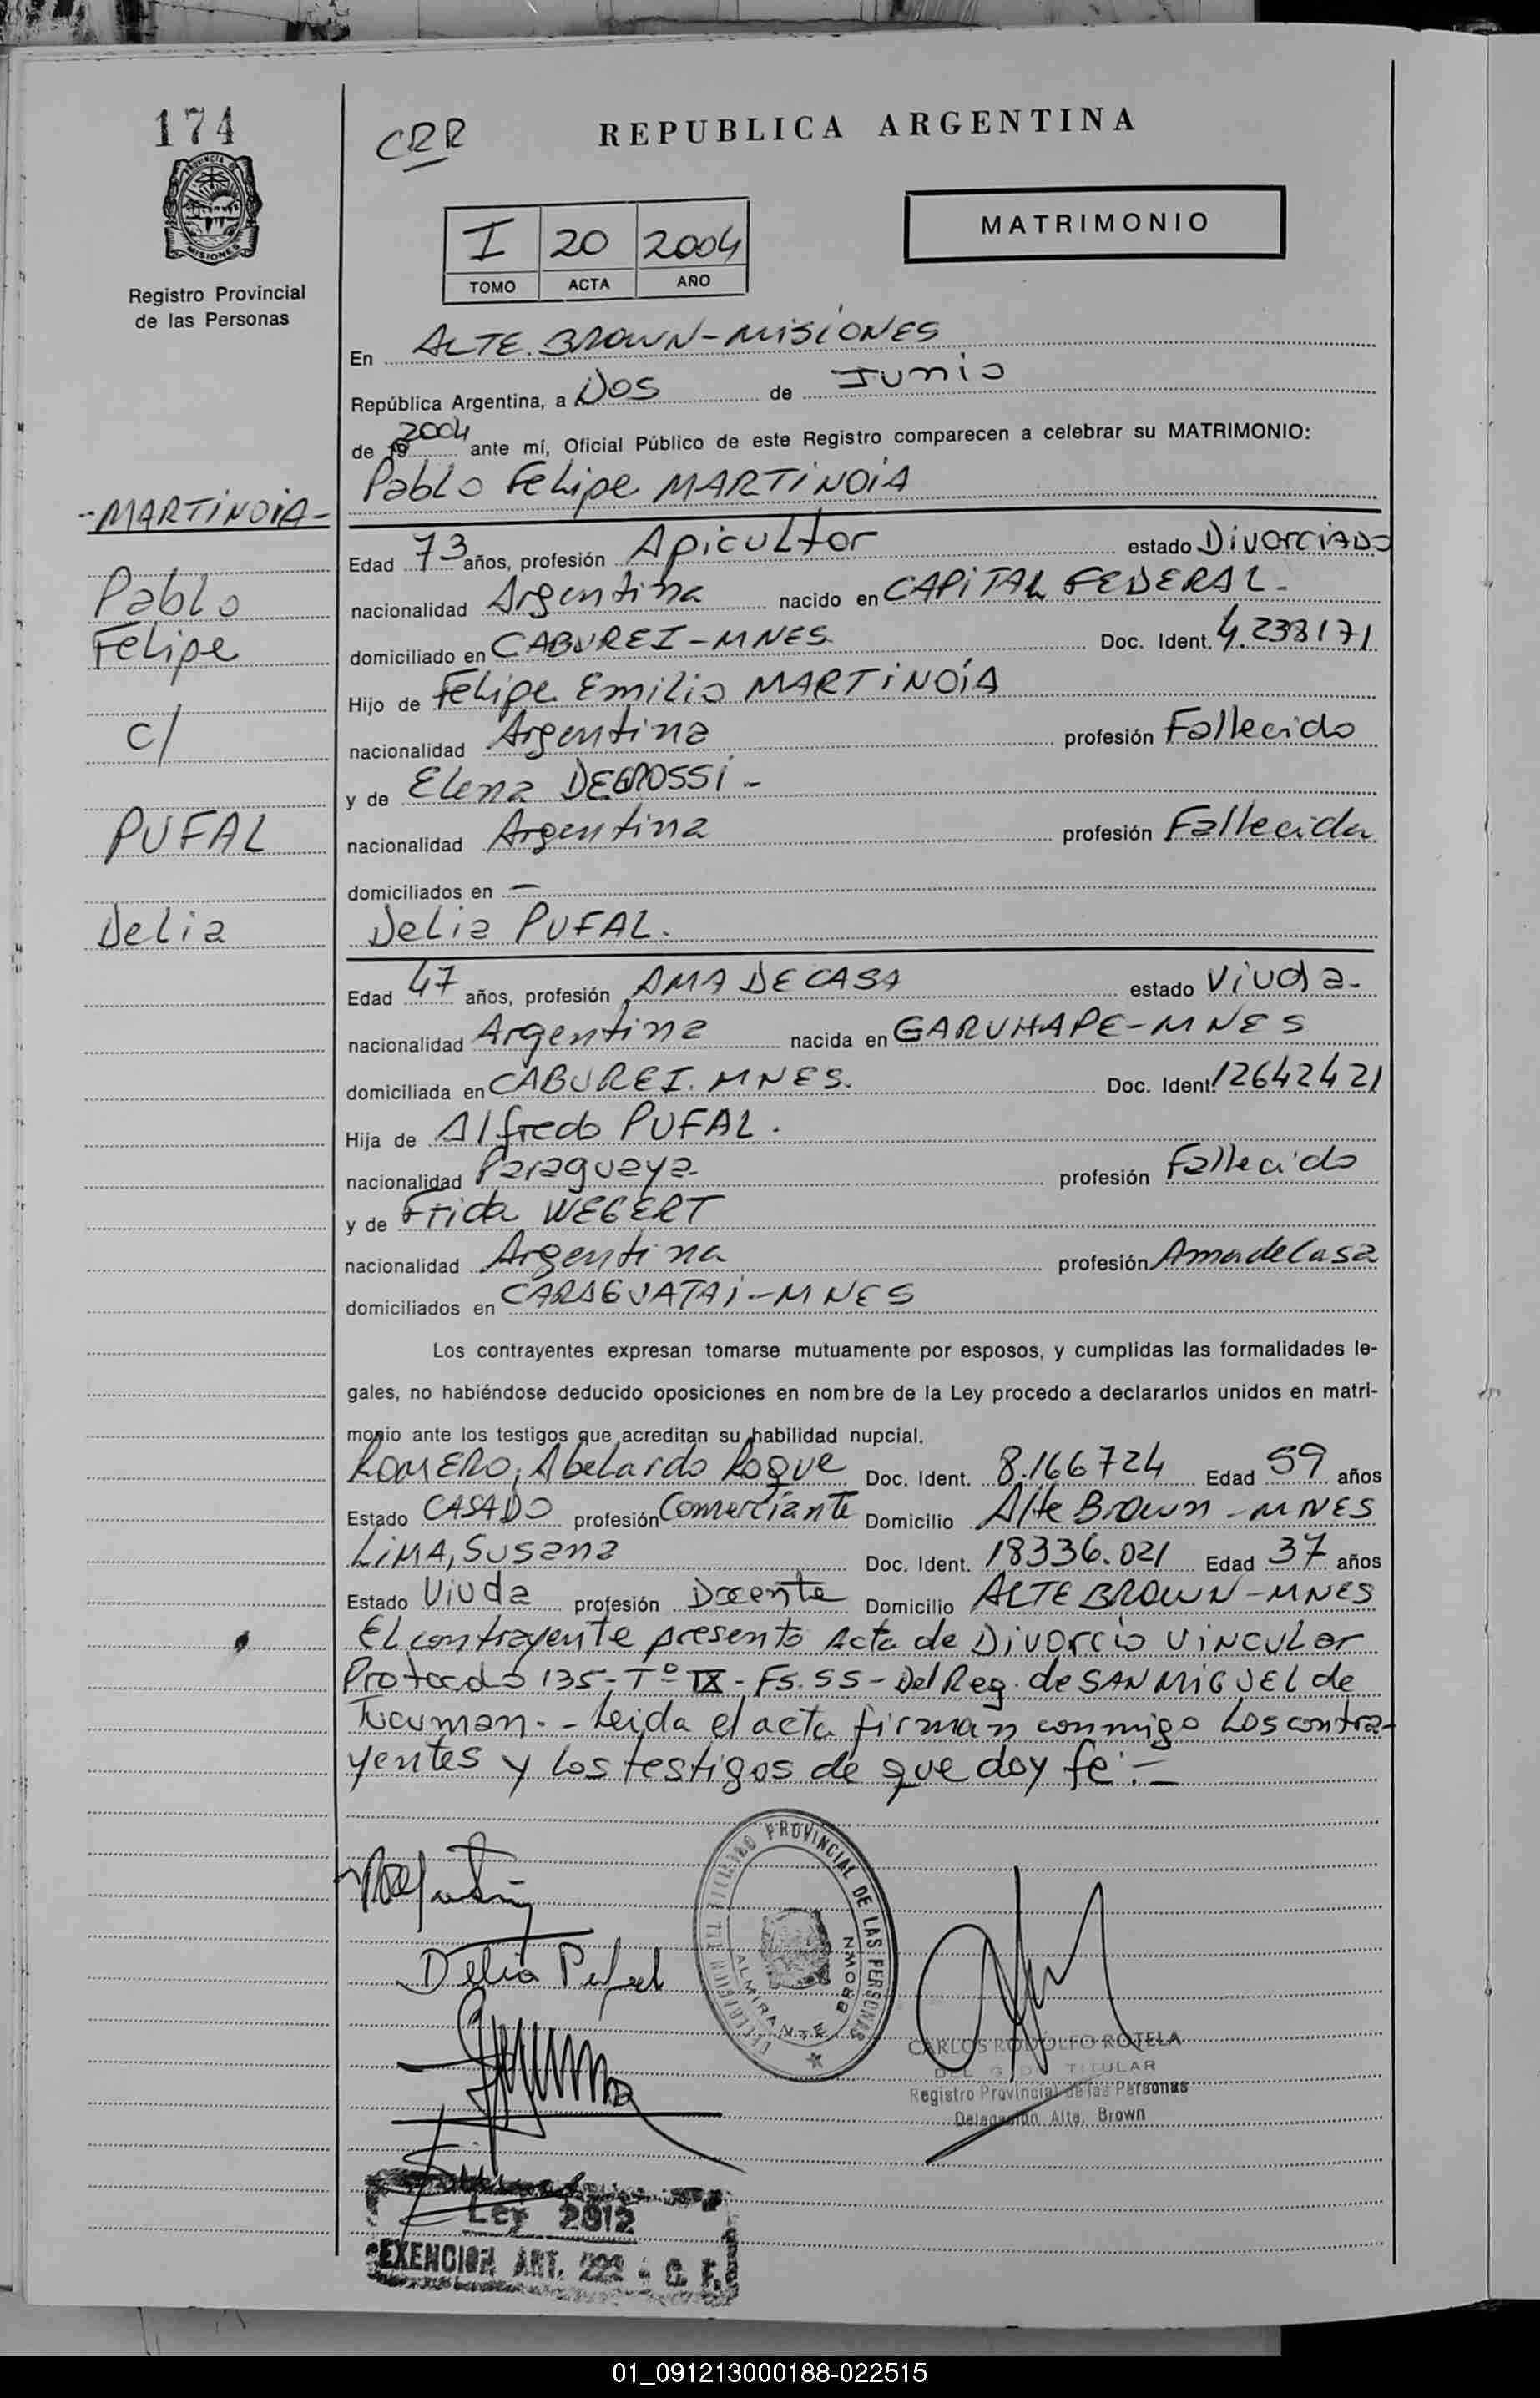 174
MISIONES
Registro Provincial
de las Personas
CRR
REPUBLICA ARGENTINA
I 20 2004
TOMO ACTA AÑO
MATRIMONIO
En ALTE. BROWN-MISIONES
República Argentina, a Dos de Junio
de 19 2004 ante mí, Oficial Público de este Registro comparecen a celebrar su MATRIMONIO:
Pablo Felipe MARTINOIA
-MARTINOIA-
Pablo
Felipe
c/
PUFAL
Delia
Edad 73 años, profesión Apicultor estado Divorciado
nacionalidad Argentina nacido en CAPITAL FEDERAL-
domiciliado en CABUREI-MNES. Doc. Ident. 4.238171
Hijo de Felipe Emilio MARTINOÍA
nacionalidad Argentina profesión Fallecido
y de Elena DEGROSSI-
nacionalidad Argentina profesión Fallecida
domiciliados en —
Delia PUFAL.
Edad 47 años, profesión AMA DE CASA estado Viuda-
nacionalidad Argentina nacida en GARUHAPE-MNES
domiciliada en CABUREI. MNES. Doc. Ident. 12642421
Hija de Alfredo PUFAL.
nacionalidad Paraguaya profesión Fallecido
y de Frida WEGERT
nacionalidad Argentina profesión Ama de Casa
domiciliados en CARAGUATAI-MNES
Los contrayentes expresan tomarse mutuamente por esposos, y cumplidas las formalidades le-
gales, no habiéndose deducido oposiciones en nombre de la Ley procedo a declararlos unidos en matri-
monio ante los testigos que acreditan su habilidad nupcial.
ROMERO, Abelardo Roque Doc. Ident. 8.166724 Edad 59 años
Estado CASADO profesión Comerciante Domicilio Alte Brown-MNES
LIMA, Susana Doc. Ident. 18336.021 Edad 37 años
Estado Viuda profesión Docente Domicilio ALTE BROWN-MNES
El contrayente presento Acta de Divorcio Vincular
Protocolo 135-Tº IX-Fs. 55-Del Reg. de SAN MIGUEL de
Tucuman.- Leida el acta firman conmigo Los contra-
yentes y Los testigos de que doy fe.-
Delia Pufal
PROVINCIAL DE LAS PERSONAS
ALMIRANTE BROWN
CARLOS RODOLFO ROTELA
TITULAR
Registro Provincial de las Personas
Delegación Alte. Brown
Ley 2012
EXENCION ART. 222 C. F.
01_091213000188-022515